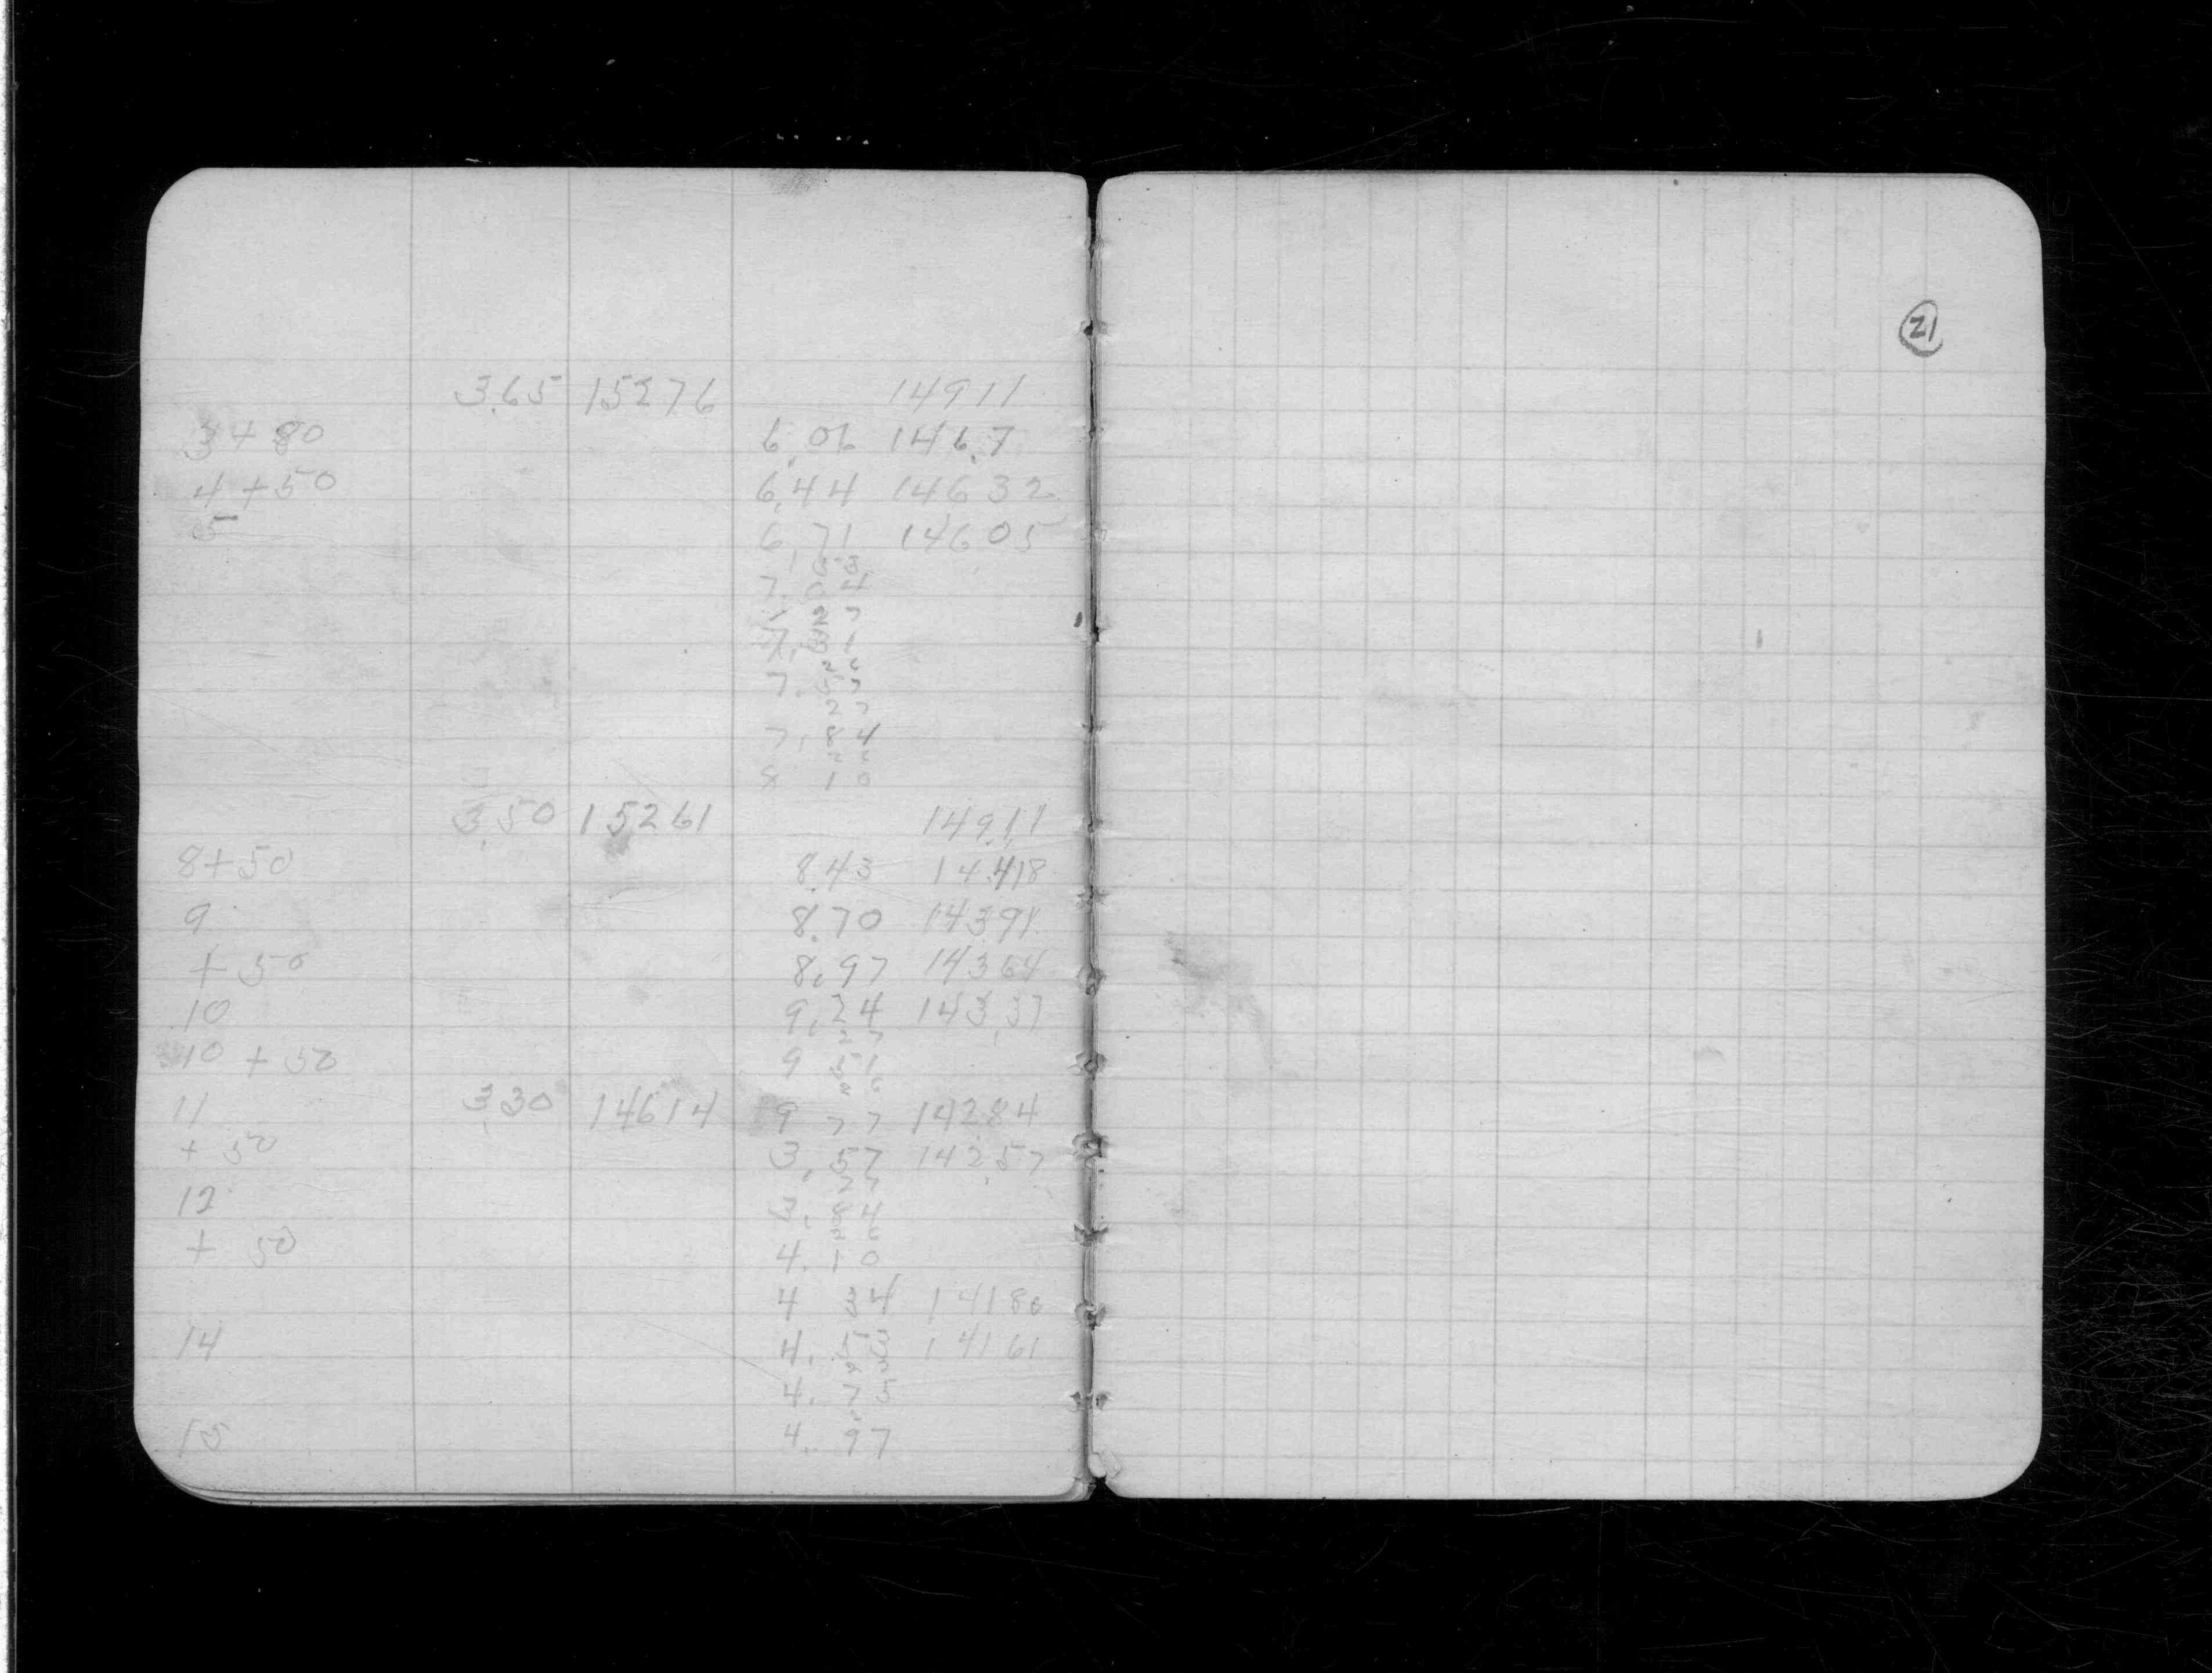 3.65 15276 14911
3+80 6.06 146.7
4+50 6.44 14632
5 6.71 14605
33
7. 4
27
7.31
26
7.57
27
7.84
26
8 10
3.50 15261 149.11
8+50 8.43 14.418
9 8.70 14391
+50 8.97 14364
10 9.24 143.37
27
10+50 9 51
26
11 3.30 14614 9 77 14284
+50 3.57 142.57
27
12 3.84
26
+50 4.10
4 34 14180
14 4. 53 14161
4.75
15 4.97
21